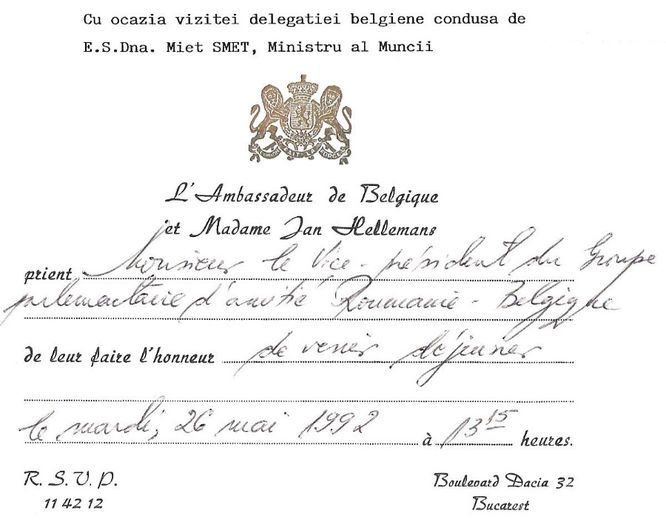 Cu ocazia vizitei delegatiei belgiene condusa de
E.S.Dna. Miet SMET, Ministru al Muncii
L'Ambassadeur de Belgique
et Madame Jan Hellemans
prient Monsieur le Vice-président du Groupe
parlementaire d'amitié Roumanie-Belgique
de leur faire l'honneur de venir déjeuner
le mardi, 26 mai 1992 à 13 15 heures.
R. S. V. P.
11 42 12
Boulevard Dacia 32
Bucarest